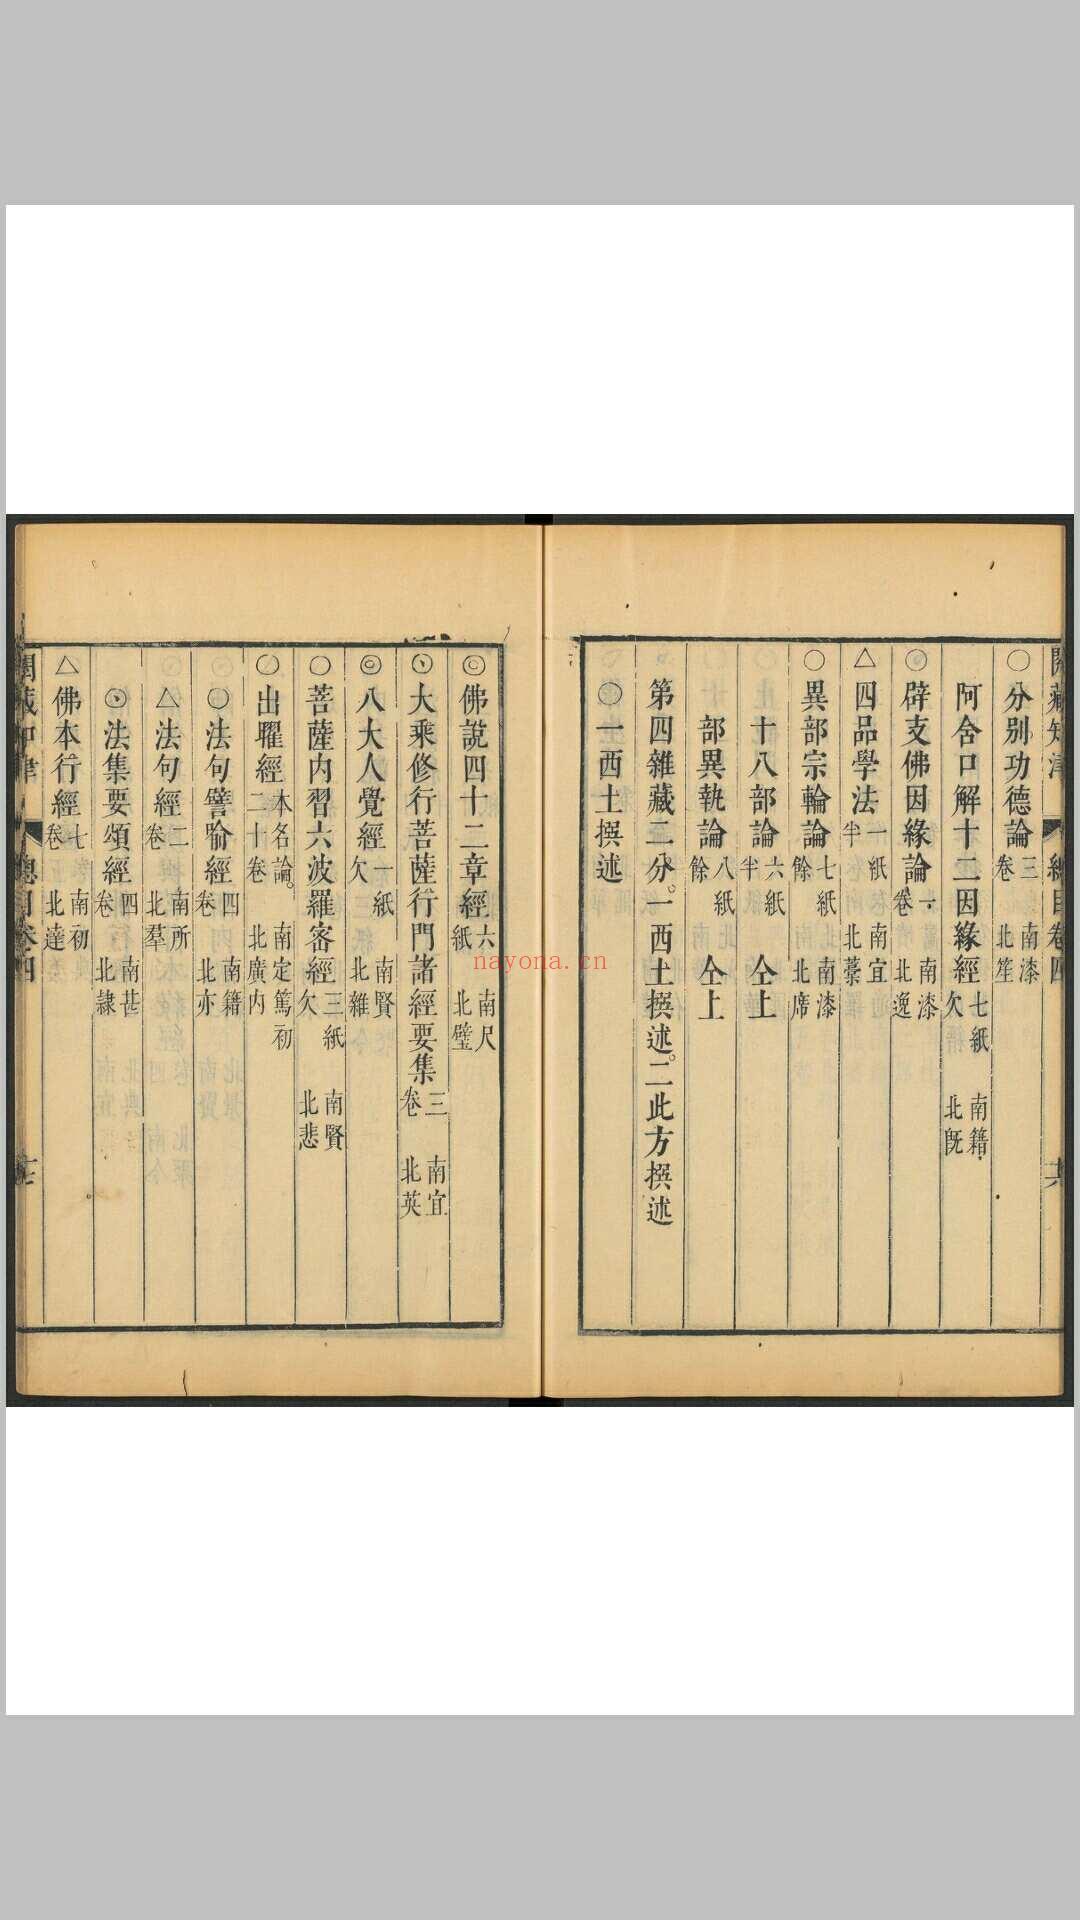 閱藏知津 總目卷四
○分別功德論 三卷 南漆 北笙
阿含口解十二因緣經 七紙欠 南籍 北既
◎辟支佛因緣論 一卷 南漆 北逸
△四品學法 一紙半 南宜 北藁
○異部宗輪論 七紙餘 南漆 北席
十八部論 六紙半 仝上
部異執論 八紙餘 仝上
第四雜藏二分。一西土撰述。二此方撰述
○一西土撰述
◎佛說四十二章經 六紙 南尺 北璧
⊙大乘修行菩薩行門諸經要集 三卷 南宜 北英
◎八大人覺經 一紙欠 南賢 北雜
○菩薩內習六波羅密經 三紙欠 南賢 北悲
○出曜經 本名論。二十卷 南定篤初 北廣內
○法句譬喻經 四卷 南籍 北亦
△法句經 二卷 南所 北羣
⊙法集要頌經 四卷 南甚 北隸
△佛本行經 七卷 南初 北達
閱藏知津 總目卷四
nayona.cn